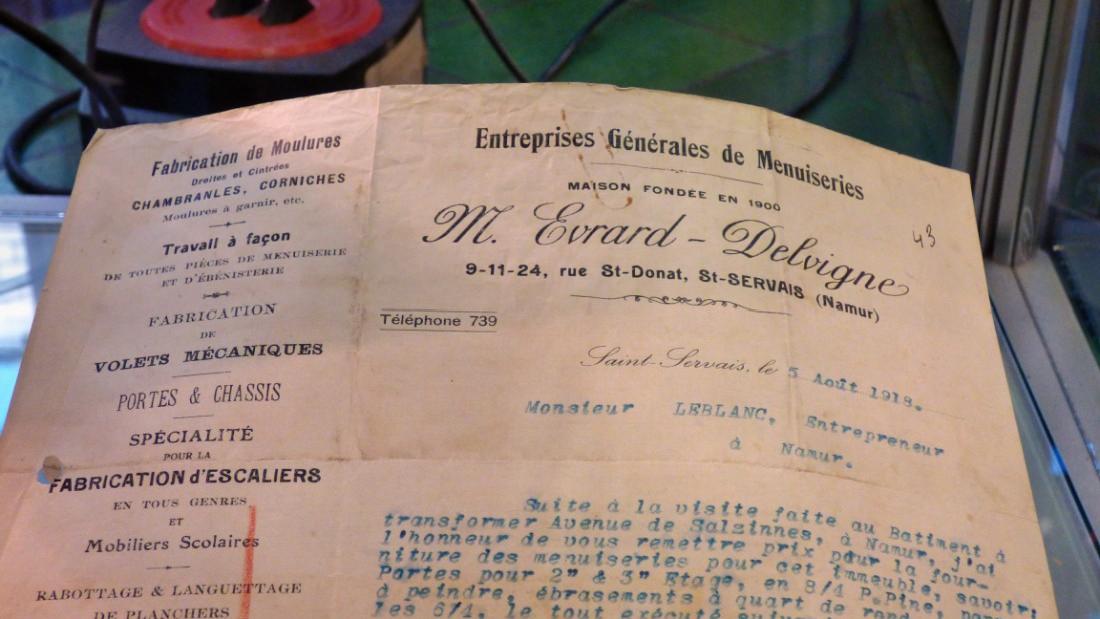 Fabrication de Moulures
Droites et Cintrées
CHAMBRANLES, CORNICHES
Moulures à garnir, etc.
Travail à façon
DE TOUTES PIÈCES DE MENUISERIE
ET D'ÉBÉNISTERIE
FABRICATION
DE
VOLETS MÉCANIQUES
PORTES & CHASSIS
SPÉCIALITÉ
POUR LA
FABRICATION d'ESCALIERS
EN TOUS GENRES
ET
Mobiliers Scolaires
RABOTTAGE & LANGUETTAGE
DE PLANCHERS
Entreprises Générales de Menuiseries
MAISON FONDÉE EN 1900
M. Evrard - Delvigne
9-11-24, rue St-Donat, St-SERVAIS (Namur)
43
Téléphone 739
Saint-Servais, le 5 Août 1918.
Monsieur LEBLANC, Entrepreneur
à Namur.
Suite à la visite faite au Batiment à
transformer Avenue de Salzinnes, à Namur, j'ai
l'honneur de vous remettre prix pour la four-
niture des menuiseries pour cet immeuble, savoir:
Portes pour 2" & 3" Etage, en 8/4 P.Pine,
à peindre, ébrasements à quart de rond,
les 6/4. le tout exécuté